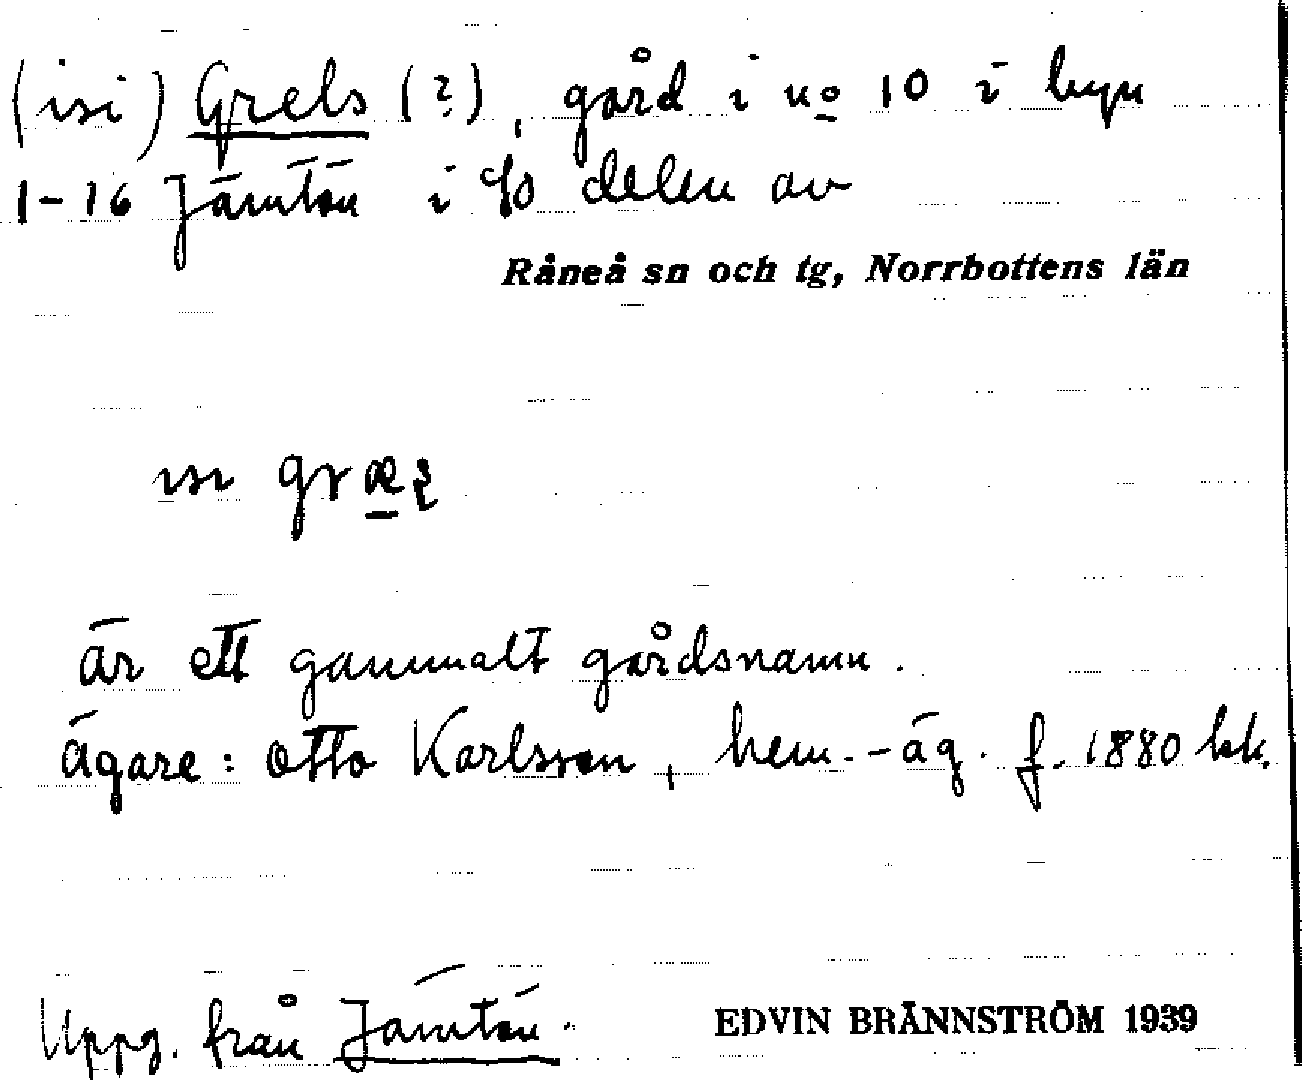 (isi) Grels (?), gård i no 10 i byn
1-16 Jämtön i sö delen av
Råneå sn och tg, Norrbottens län
isi
är ett gammalt gårdsnamn.
ägare: Otto Karlsson, hem.-äg. f. 1880 hk.
Uppg. från Jämtön.
EDVIN BRÄNNSTRÖM 1939